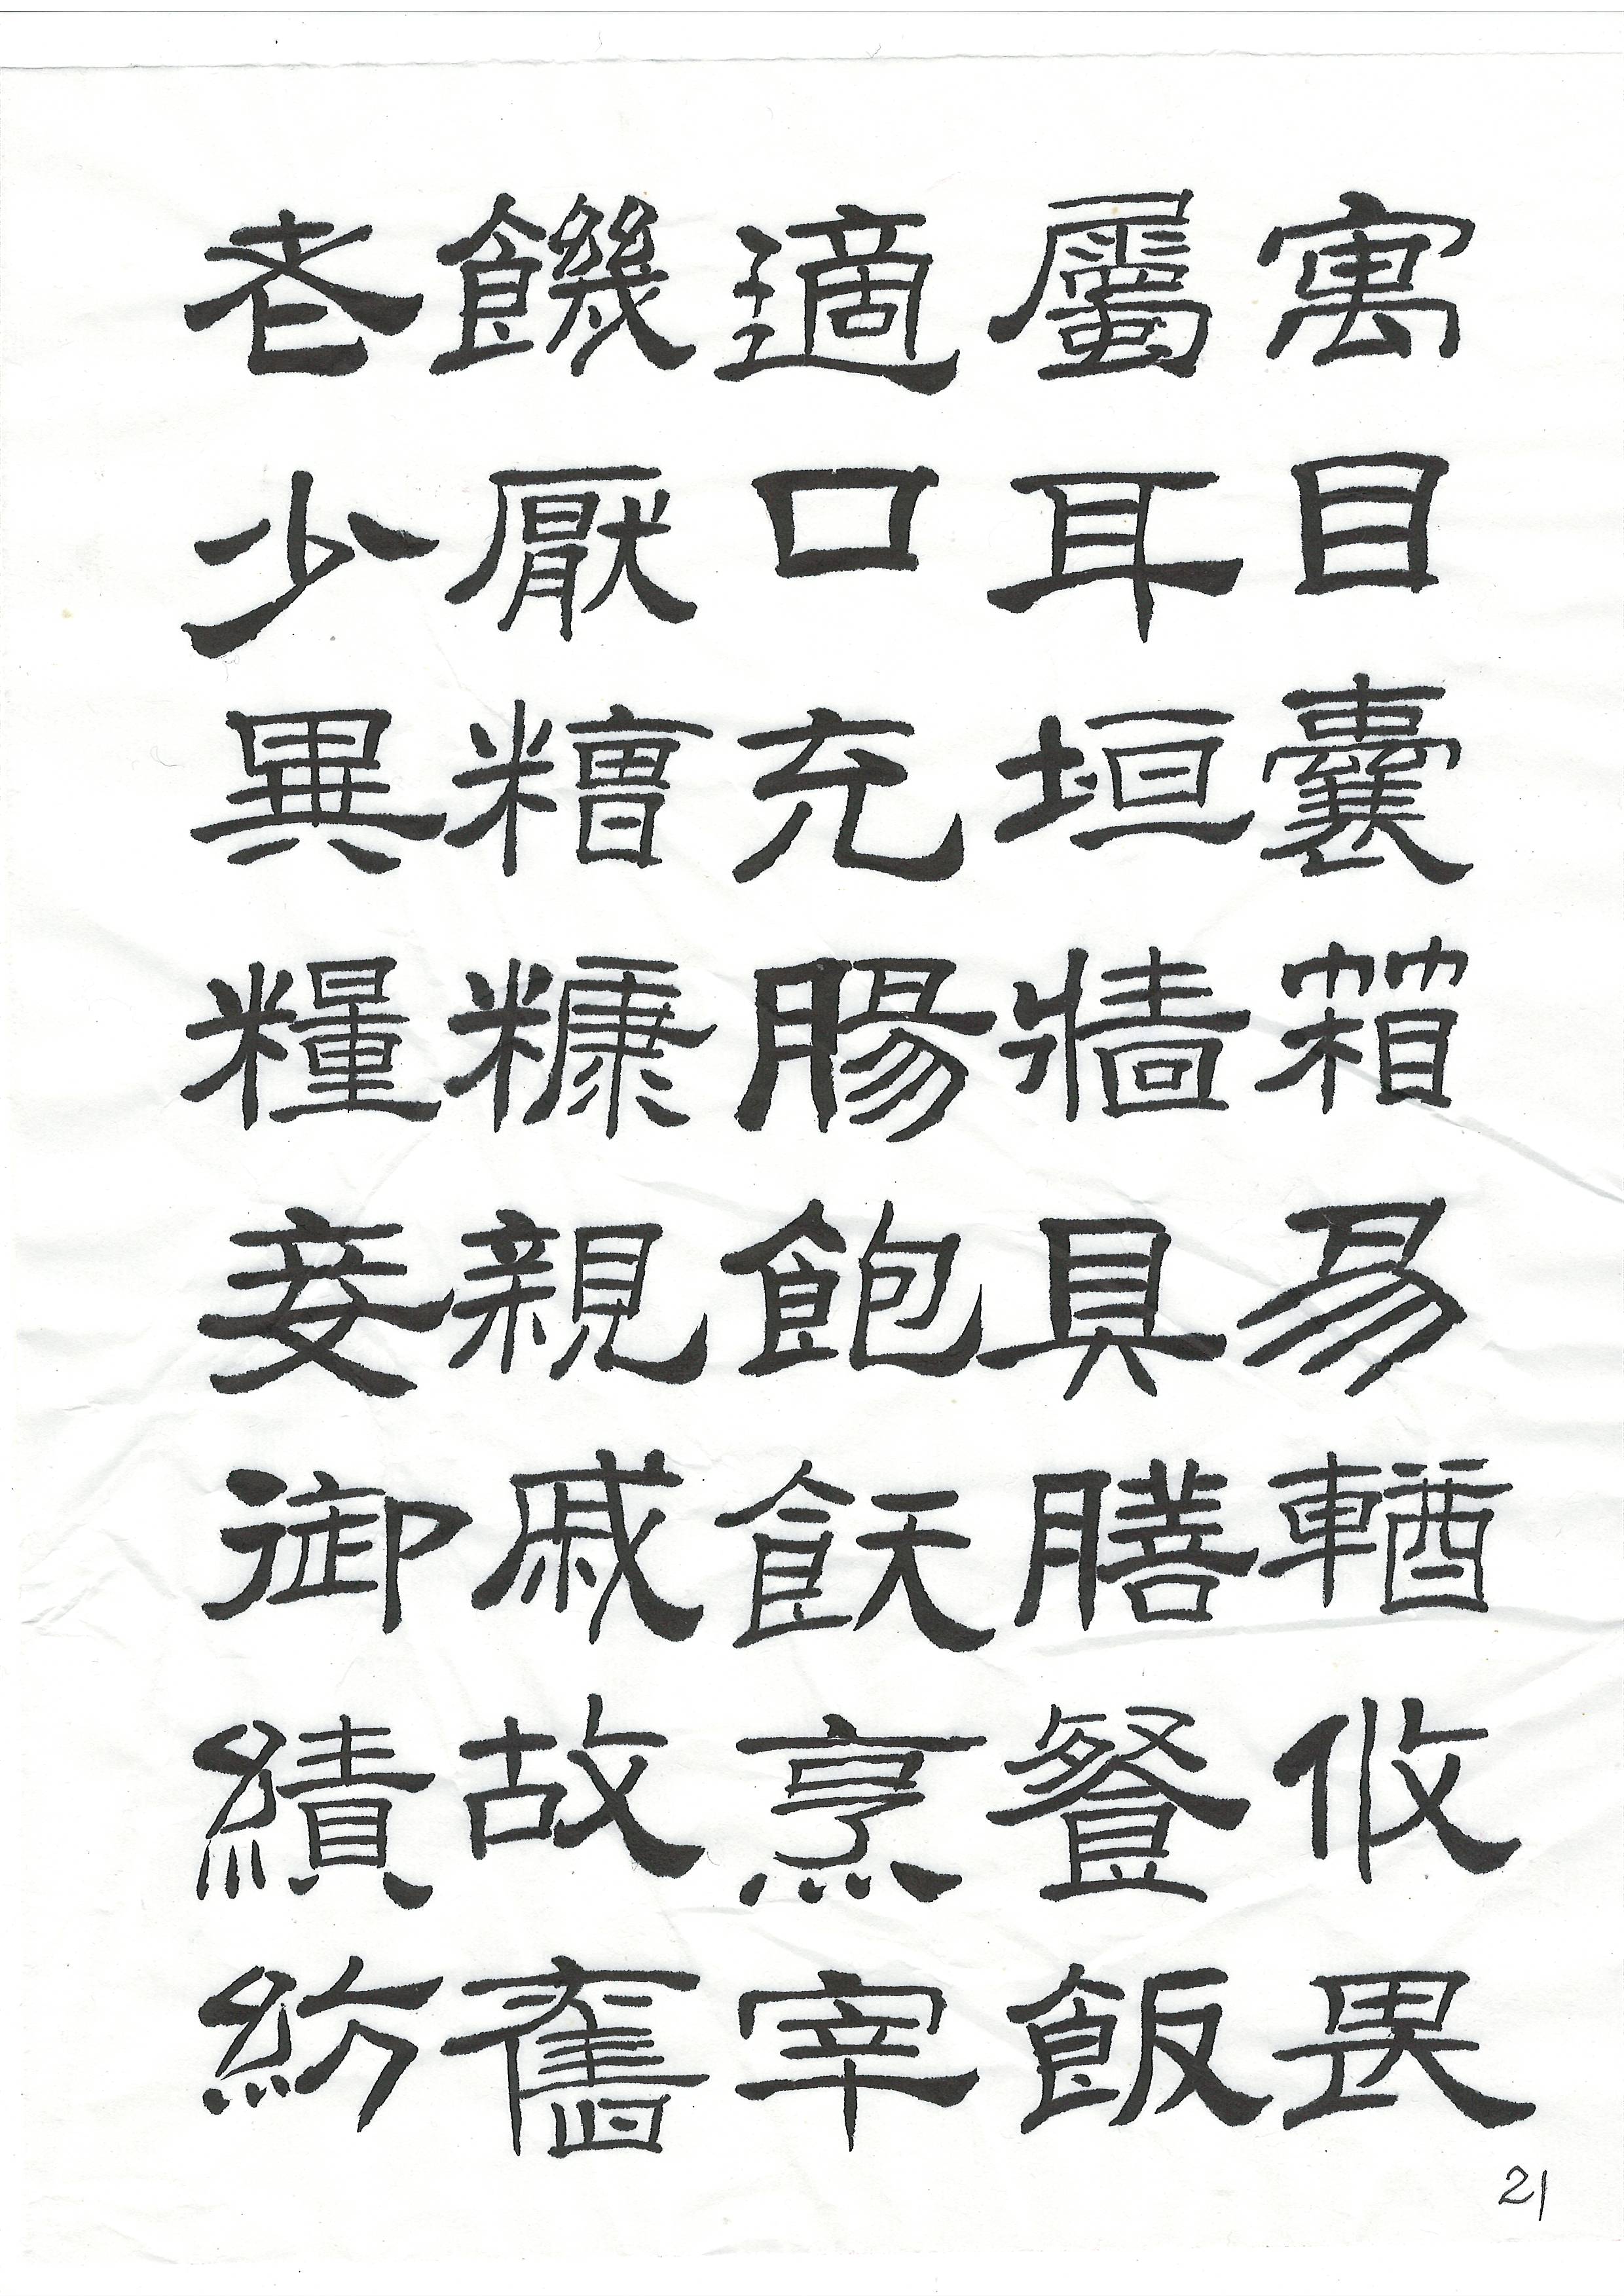 寓目囊箱易輶攸畏
屬耳垣牆具膳餐飯
適口充腸飽飫烹宰
饑厭糟糠親戚故舊
老少異糧妾御績紡
21